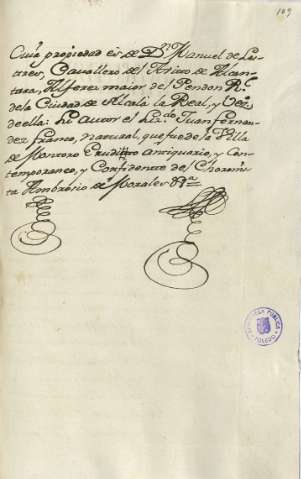 169
Cuia propiedad es de Dn. Manuel de
Cavallero del de Alcan-
tara, Alferez maior del Pendon Rl.
de la Ciudad de Alcalá la Real, y
de ella: su autor el Liz.do Juan Fernan-
dez Franco, natural, que fue de la Villa
de Montoro Erudito antiquario, y con-
temporaneo, y Confidente del Choronis-
ta Ambrosio de Morales
BIBLIOTECA PUBLICA
TOLEDO